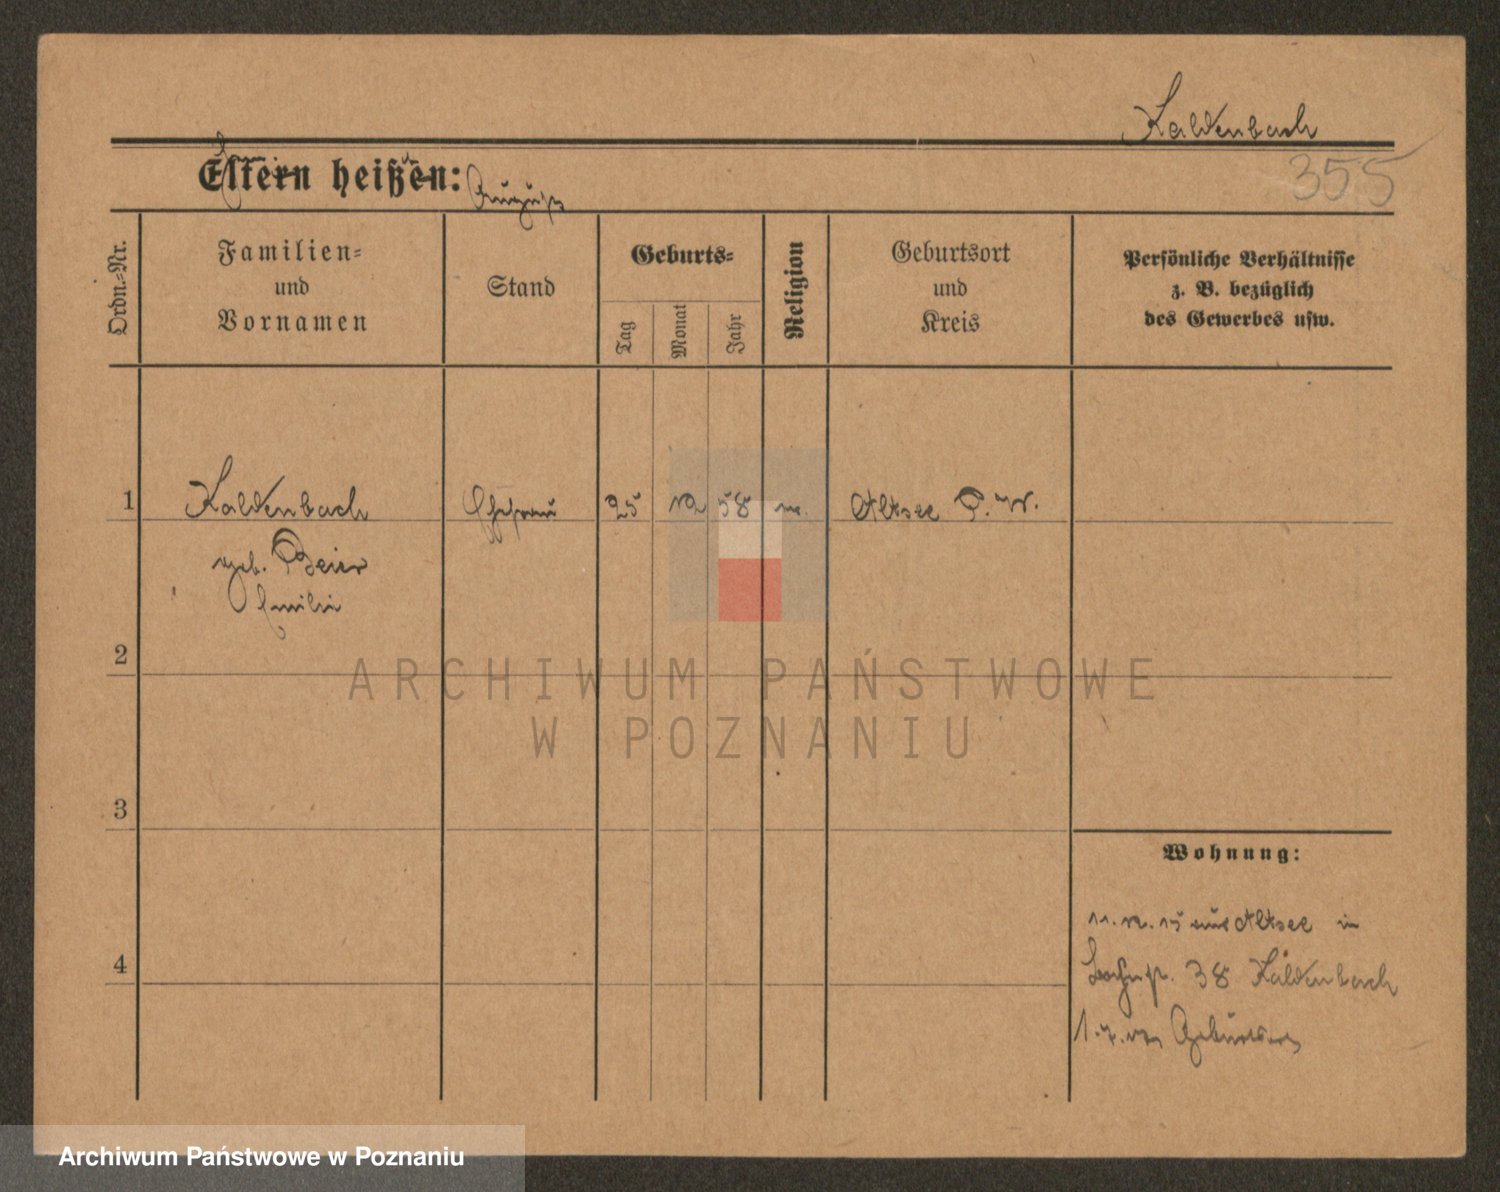 Kaldenbach
355
Eltern heißen:
August
Ordn.-Nr.
Familien-
und
Vornamen
Stand
Geburts-
Tag
Monat
Jahr
Religion
Geburtsort
und
Kreis
Persönliche Verhältnisse
z. B. bezüglich
des Gewerbes usw.
1
Kaldenbach
Ehefrau
25
12
58
Altsee P. W.
geb. Beier
Emilie
2
ARCHIWUM PAŃSTWOWE
W POZNANIU
3
Wohnung:
11. 12. 15 aus Altsee in
38 Kaldenbach
4
1. 7.
Archiwum Państwowe w Poznaniu